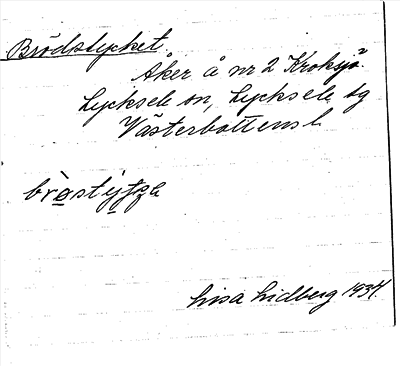 Brödstycket
Åker å nr 2 Kroksjö.
Lycksele sn, Lycksele tg
Västerbottens l
Lisa Lidberg 1934.